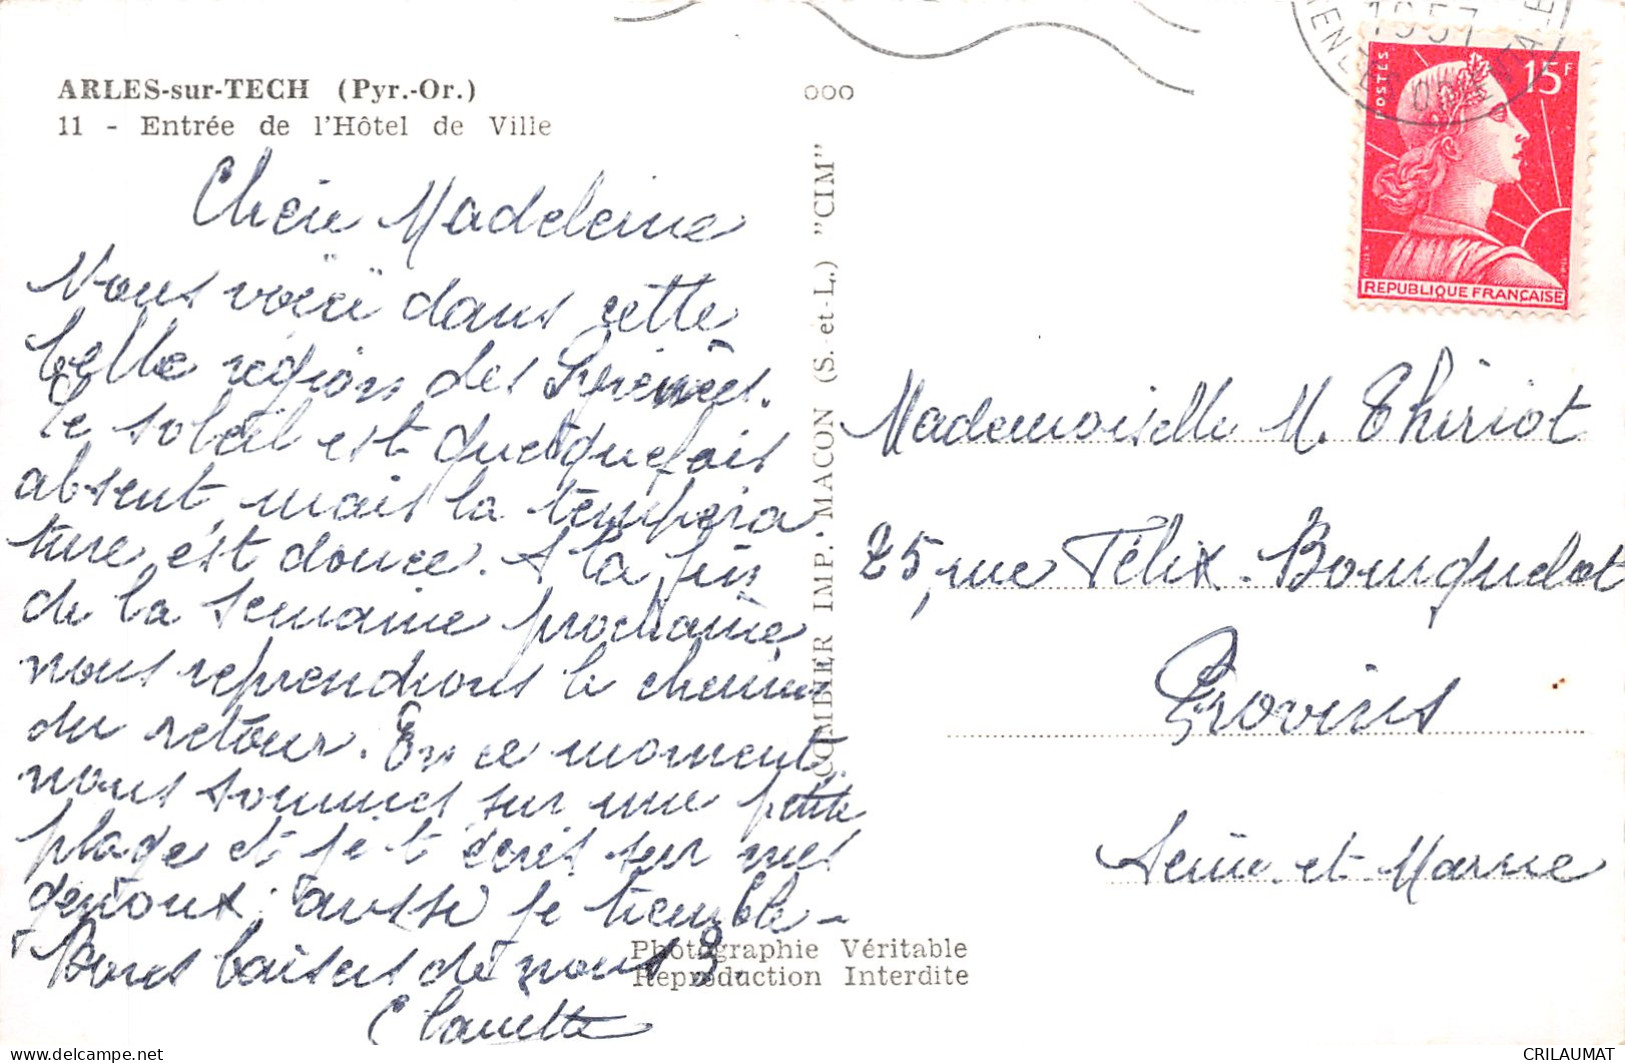 ARLES-sur-TECH (Pyr.-Or.)
11 - Entrée de l'Hôtel de Ville
Chère Madeleine
Nous voici dans cette
belle région des Pyrénées.
Le soleil est quelquefois
absent, mais la tempéra
ture est douce. A la fin
de la semaine prochaine,
nous reprendrons le chemin
du retour. En ce moment,
nous sommes sur une petite
plage et je t'écris sur mes
genoux ; aussi je tremble -
Bons baisers de nous 3.
Claudette
ooo
COMBIER IMP. MACON (S.-et-L.) "CIM"
Photographie Véritable
Reproduction Interdite
1957
POSTES
15F
REPUBLIQUE FRANÇAISE
Mademoiselle M. Thiriot
25, rue Félix Bourquelot
Provins
Seine-et-Marne
CRILAUMAT
www.delcampe.net